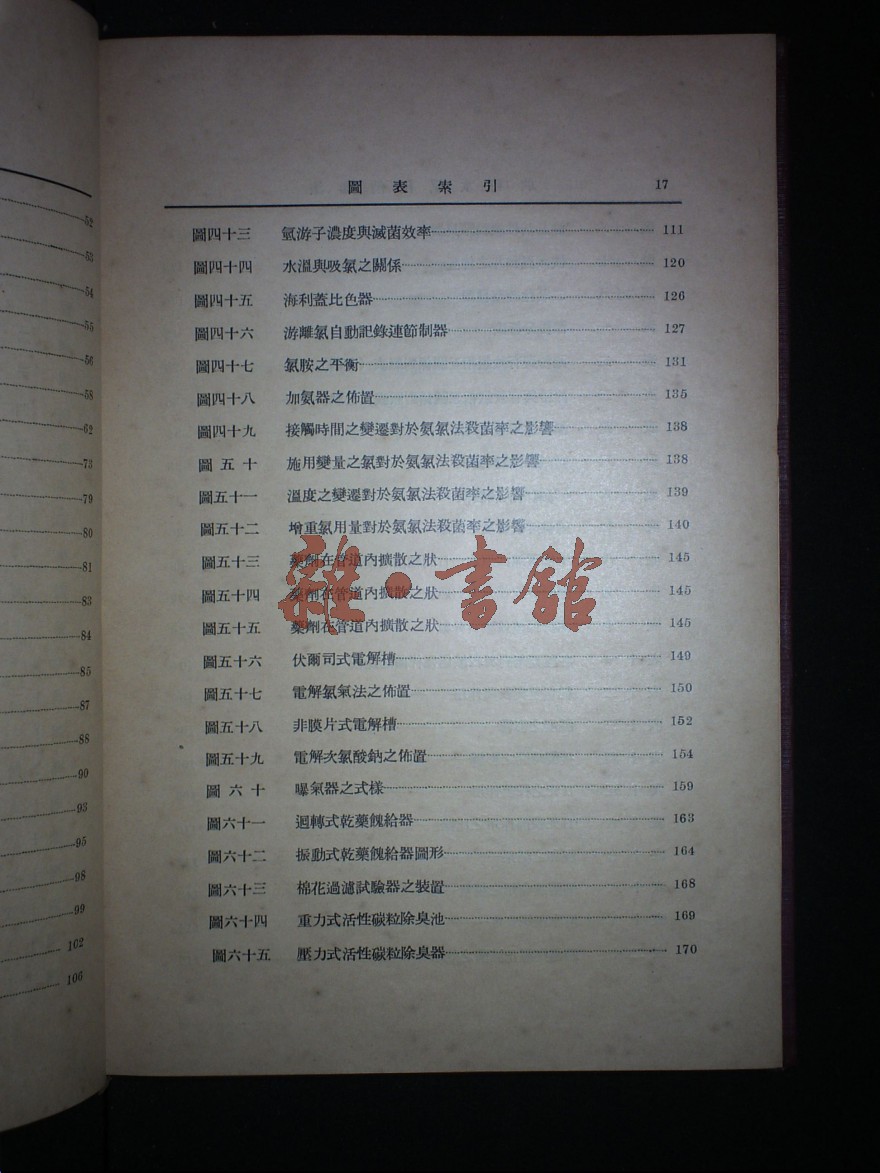 52
53
54
55
56
58
62
73
79
80
81
83
84
85
87
88
90
93
95
98
99
102
106
圖表索引 17
圖四十三 氫游子濃度與滅菌效率 111
圖四十四 水溫與吸氯之關係 120
圖四十五 海利蓋比色器 126
圖四十六 游離氯自動記錄連節制器 127
圖四十七 氯胺之平衡 131
圖四十八 加氨器之佈置 135
圖四十九 接觸時間之變遷對於氨氯法殺菌率之影響 138
圖五十 施用變量之氯對於氨氯法殺菌率之影響 138
圖五十一 溫度之變遷對於氨氯法殺菌率之影響 139
圖五十二 增重氯用量對於氨氯法殺菌率之影響 140
圖五十三 藥劑在管道內擴散之狀 145
圖五十四 藥劑在管道內擴散之狀 145
圖五十五 藥劑在管道內擴散之狀 145
圖五十六 伏爾司式電解槽 149
圖五十七 電解氯氣法之佈置 150
圖五十八 非膜片式電解槽 152
圖五十九 電解次氯酸鈉之佈置 154
圖六十 曝氣器之式樣 159
圖六十一 迴轉式乾藥餽給器 163
圖六十二 振動式乾藥餽給器圖形 164
圖六十三 棉花過濾試驗器之裝置 168
圖六十四 重力式活性碳粒除臭池 169
圖六十五 壓力式活性碳粒除臭器 170
雜·書館